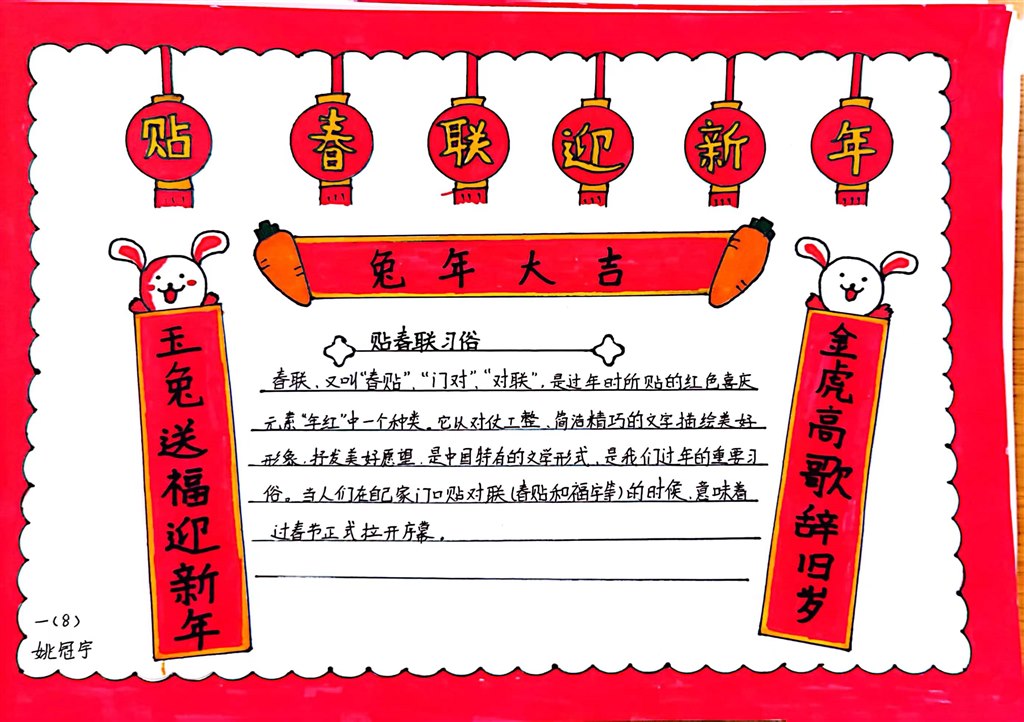 贴春联迎新年
兔年大吉
金虎高歌辞旧岁
玉兔送福迎新年
贴春联习俗
春联、又叫“春贴”、“门对”、“对联”，是过年时所贴的红色喜庆
元素“年红”中一个种类。它从对仗工整、简洁精巧的文字描绘美好
形象，抒发美好愿望，是中国特有的文学形式，是我们过年的重要习
俗。当人们在自己家门口贴对联(春贴和福字等)的时候、意味着
过春节正式拉开序幕。
一(8)
姚冠宇